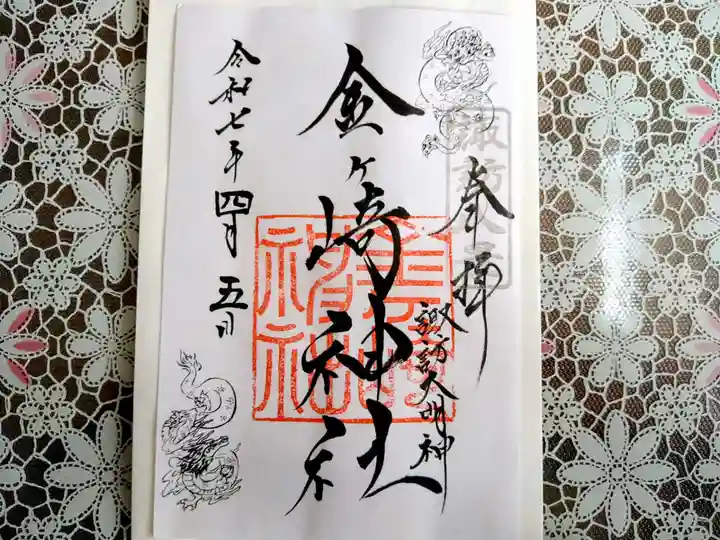 奉拝
諏訪大明神
金ヶ崎神社
令和七年四月五日